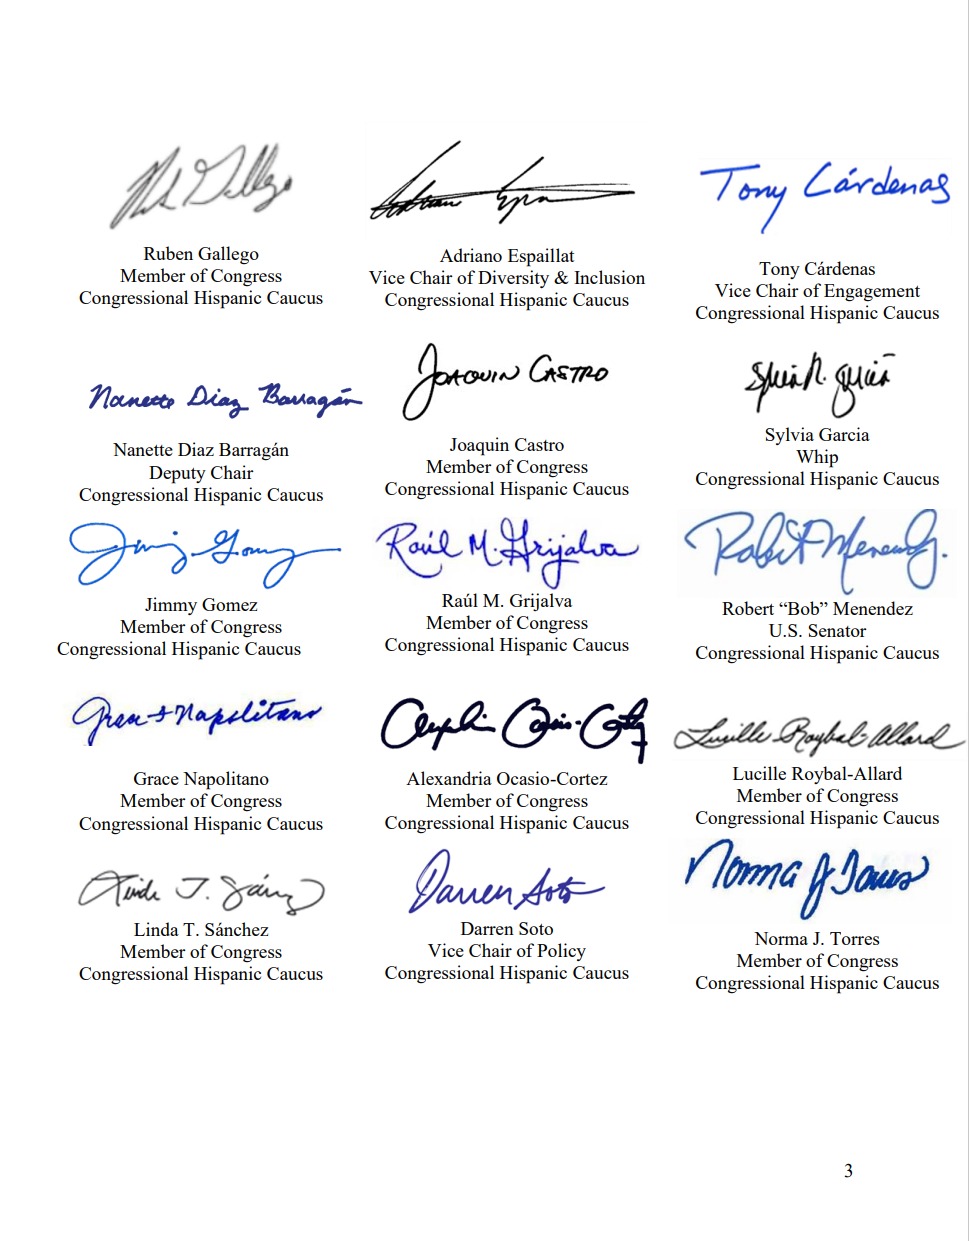 Ruben Gallego
Member of Congress
Congressional Hispanic Caucus
Adriano Espaillat
Vice Chair of Diversity & Inclusion
Congressional Hispanic Caucus
Tony Cárdenas
Tony Cárdenas
Vice Chair of Engagement
Congressional Hispanic Caucus
Nanette Diaz Barragán
Nanette Diaz Barragán
Deputy Chair
Congressional Hispanic Caucus
JOAQUIN CASTRO
Joaquin Castro
Member of Congress
Congressional Hispanic Caucus
Sylvia Garcia
Whip
Congressional Hispanic Caucus
Jimmy Gomez
Jimmy Gomez
Member of Congress
Congressional Hispanic Caucus
Raúl M. Grijalva
Raúl M. Grijalva
Member of Congress
Congressional Hispanic Caucus
Robert Menendez
Robert “Bob” Menendez
U.S. Senator
Congressional Hispanic Caucus
Grace F Napolitano
Grace Napolitano
Member of Congress
Congressional Hispanic Caucus
Alexandria Ocasio-Cortez
Member of Congress
Congressional Hispanic Caucus
Lucille Roybal-Allard
Lucille Roybal-Allard
Member of Congress
Congressional Hispanic Caucus
Linda T. Sánchez
Linda T. Sánchez
Member of Congress
Congressional Hispanic Caucus
Darren Soto
Darren Soto
Vice Chair of Policy
Congressional Hispanic Caucus
Norma J Torres
Norma J. Torres
Member of Congress
Congressional Hispanic Caucus
3